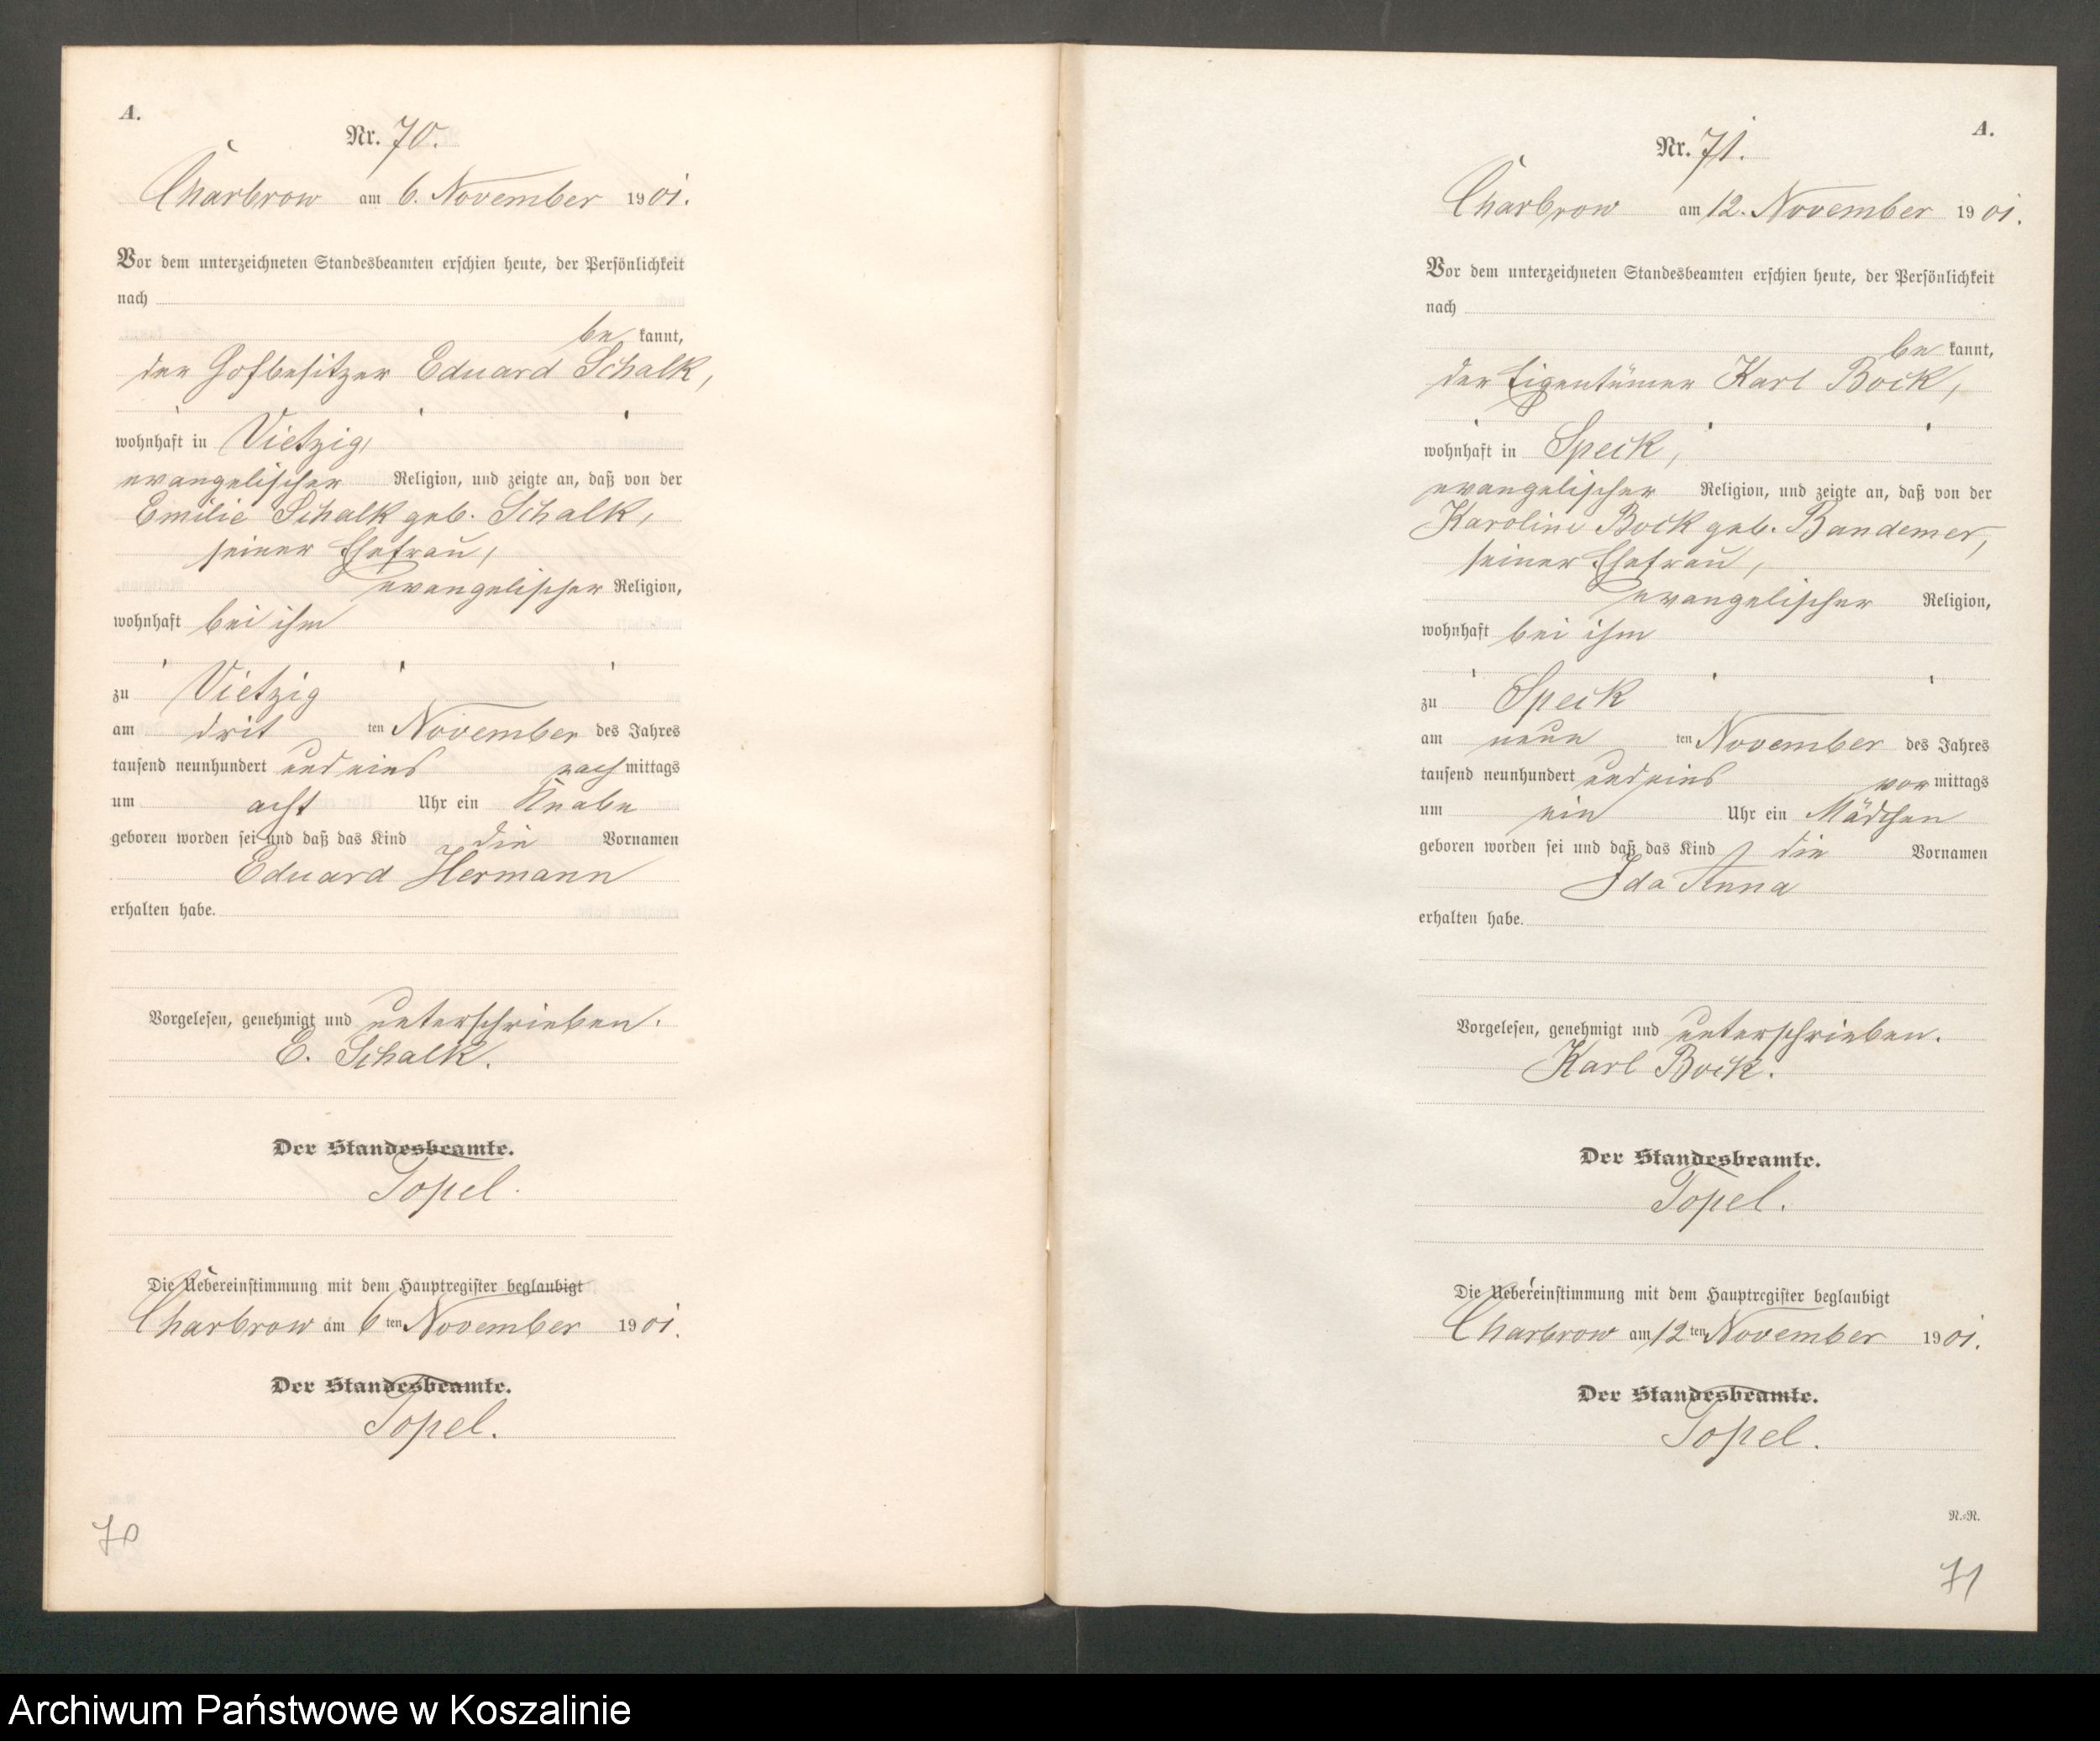 A.
Nr. 70.
Charbrow am 6. November 1901.
Vor dem unterzeichneten Standesbeamten erschien heute, der Persönlichkeit
nach
be kannt,
der Hofbesitzer Eduard Schalk,
wohnhaft in Vietzig,
evangelischer Religion, und zeigte an, daß von der
Emilie Schalk geb. Schalk,
seiner Ehefrau,
evangelischer Religion,
wohnhaft bei ihm
zu Vietzig
am drit ten November des Jahres
tausend neunhundert und eins nach mittags
um acht Uhr ein Knabe
geboren worden sei und daß das Kind die Vornamen
Eduard Hermann
erhalten habe.
Vorgelesen, genehmigt und unterschrieben.
E. Schalk.
Der Standesbeamte.
Topel.
Die Uebereinstimmung mit dem Hauptregister beglaubigt
Charbrow am 6 ten November 1901.
Der Standesbeamte.
Topel.
70
A.
Nr. 71.
Charbrow am 12. November 1901.
Vor dem unterzeichneten Standesbeamten erschien heute, der Persönlichkeit
nach
be kannt,
der Eigentümer Karl Bock,
wohnhaft in Speck,
evangelischer Religion, und zeigte an, daß von der
Karoline Bock geb. Bandemer,
seiner Ehefrau,
evangelischer Religion,
wohnhaft bei ihm
zu Speck
am neun ten November des Jahres
tausend neunhundert und eins vor mittags
um ein Uhr ein Mädchen
geboren worden sei und daß das Kind die Vornamen
Ida Anna
erhalten habe.
Vorgelesen, genehmigt und unterschrieben.
Karl Bock.
Der Standesbeamte.
Topel.
Die Uebereinstimmung mit dem Hauptregister beglaubigt
Charbrow am 12 ten November 1901.
Der Standesbeamte.
Topel.
N.=R.
71
Archiwum Państwowe w Koszalinie